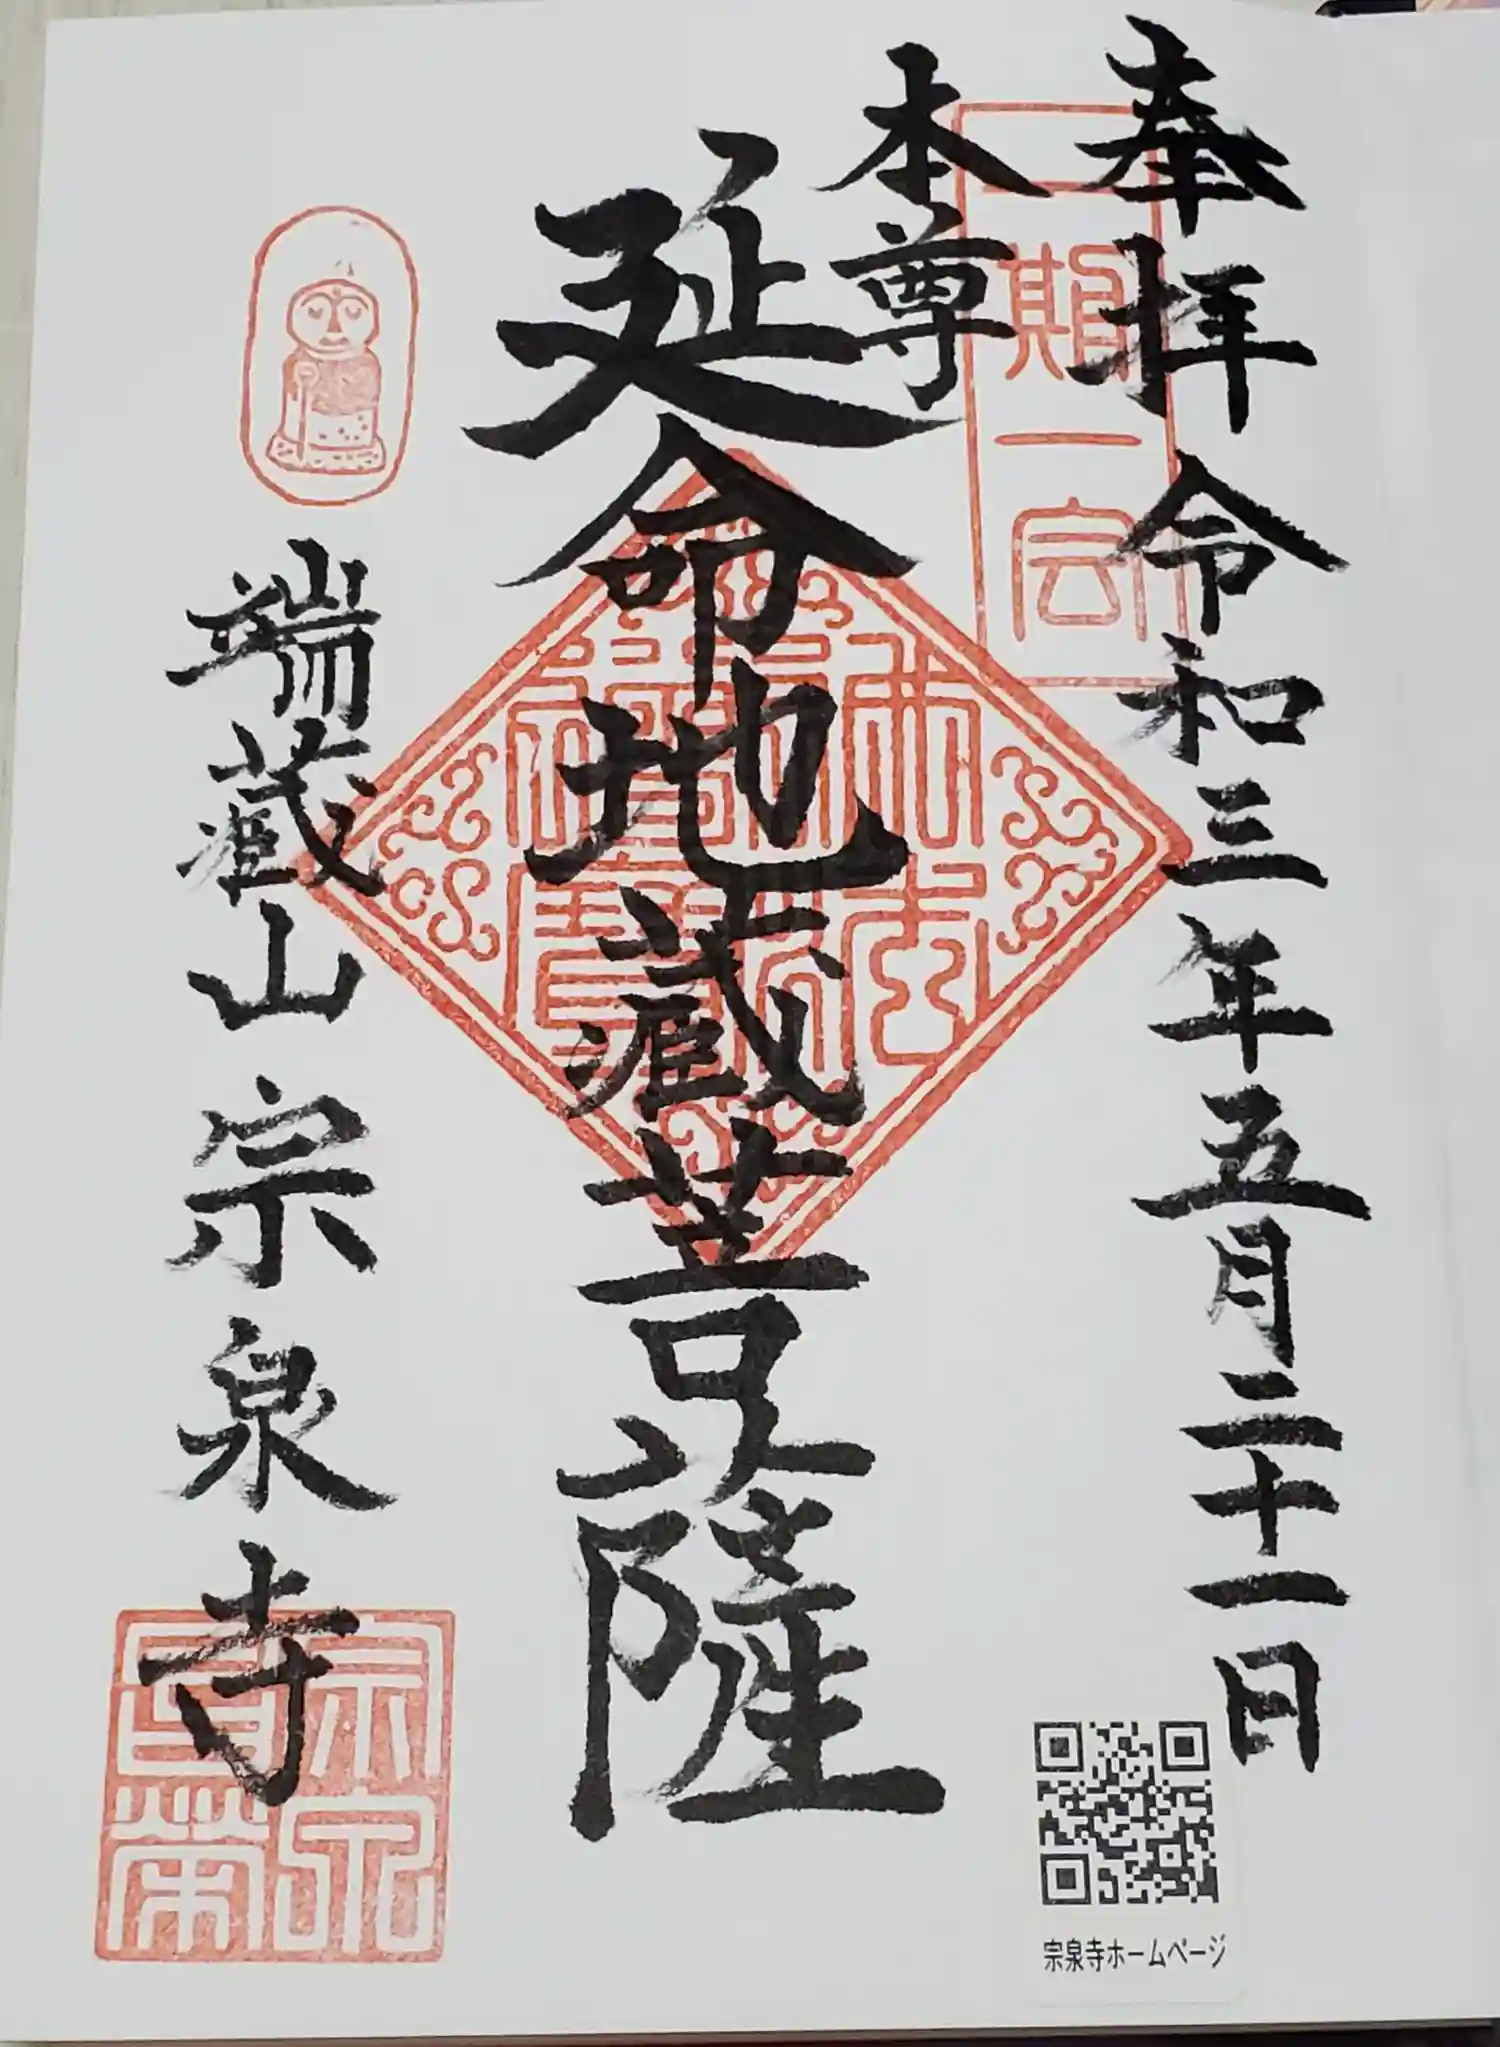 奉拝 令和三年五月二十一日
一期一会
本尊
延命地蔵菩薩
佛法僧寶
端蔵山 宗泉寺
宗泉寺ホームページ